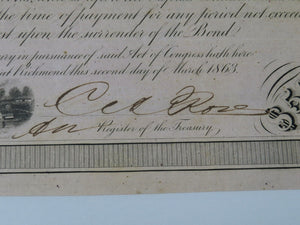 the time of payment for any period not excee
est upon the surrender of the Bond.
ury in pursuance of said Act of Congress hath here
at Richmond this second day of March 1863.
C A Rose
for Register of the Treasury,
50